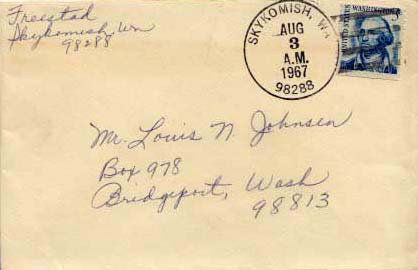 Freestad
Skykomish, Wn
98288
SKYKOMISH, WA
AUG
3
A.M.
1967
98288
UNITED STATES
WASHINGTON
5
Mr. Louis N. Johnsen
Box 978
Bridgeport, Wash
98813